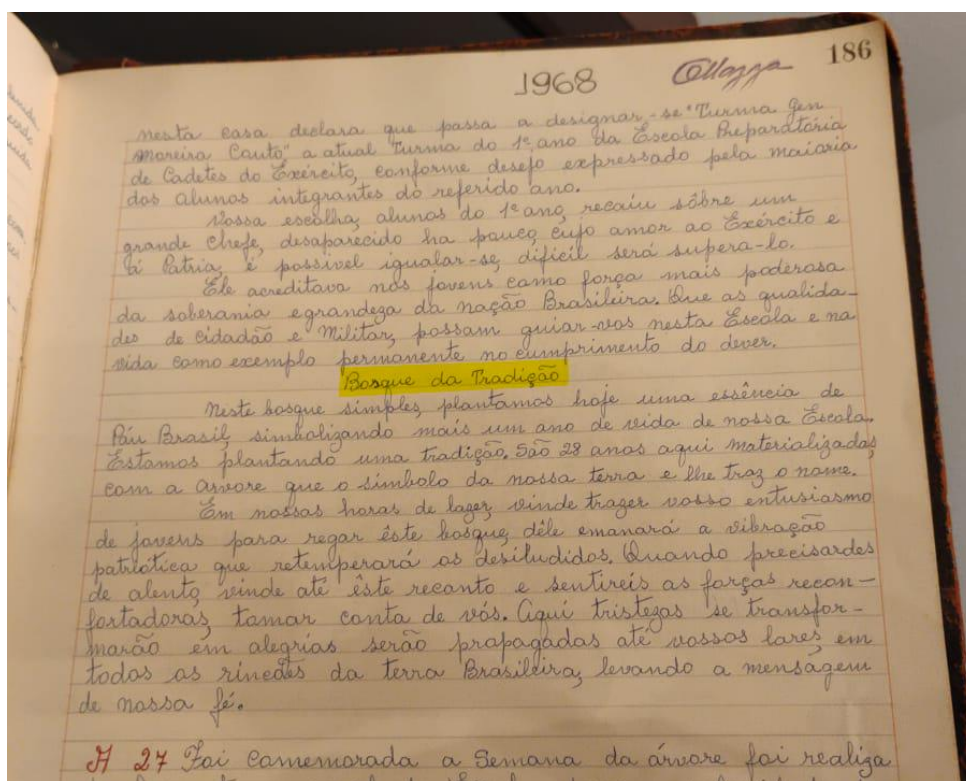 186
1968
nesta casa declara que passa a designar-se "Turma Gen
Moreira Couto" a atual Turma do 1º ano da Escola Preparatória
de Cadetes do Exército, conforme desejo expressado pela maioria
dos alunos integrantes do referido ano.
Vossa escolha, alunos do 1º ano, recaiu sôbre um
grande Chefe, desaparecido ha pouco, cujo amor ao Exército e
á Patria, é possivel igualar-se, dificil será supera-lo.
Ele acreditava nos jovens como força mais poderosa
da soberania e grandeza da nação Brasileira. Que as qualida-
des de cidadão e Militar, possam guiar-vos nesta Escola e na
vida como exemplo permanente no cumprimento do dever.
Bosque da Tradição
Neste bosque simples, plantamos hoje uma essência de
Páu Brasil, simbolizando mais um ano de vida de nossa Escola.
Estamos plantando uma tradição. São 28 anos aqui materializados,
com a arvore que o simbolo da nossa terra e lhe traz o nome.
Em nossas horas de lazer, vinde trazer vosso entusiasmo
de jovens para regar êste bosque, dêle emanará a vibração
patriótica que retemperará os desiludidos. Quando precisardes
de alento, vinde até êste recanto e sentireis as forças recon-
fortadoras, tomar conta de vós. Aqui tristezas se transfor-
marão em alegrias serão propagadas até vossos lares, em
todos os rincões da terra Brasileira, levando a mensagem
de nossa fé.
A 27 Foi Comemorada a Semana da árvore foi realiza